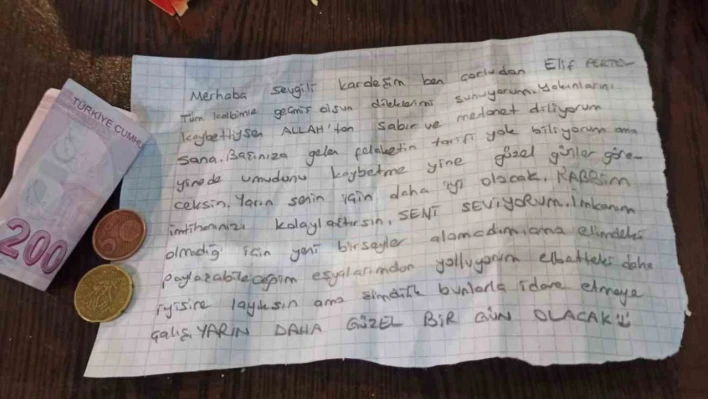 TÜRKİYE CUMHU
200
5
Merhaba sevgili kardeşim ben çorludan Elif
Tüm kalbimle geçmiş olsun dileklerimi sunuyorum. Yakınlarını
kaybettiysen ALLAH'tan sabır ve metanet diliyorum
sana. Başınıza gelen felaketin tarifi yok biliyorum ama
yinede umudunu kaybetme yine güzel günler göre-
ceksin. Yarın senin için daha iyi olacak. RABBİM
imtihanınızı kolaylaştırsın, SENİ SEVİYORUM. İmkanım
olmadığı için yeni birşeyler alamadım, ama elimdeki
paylaşabileceğim eşyalarımdan yolluyorum elbetteki daha
iyisine layıksın ama şimdilik bunlarla idare etmeye
çalış YARIN DAHA GÜZEL BİR GÜN OLACAK